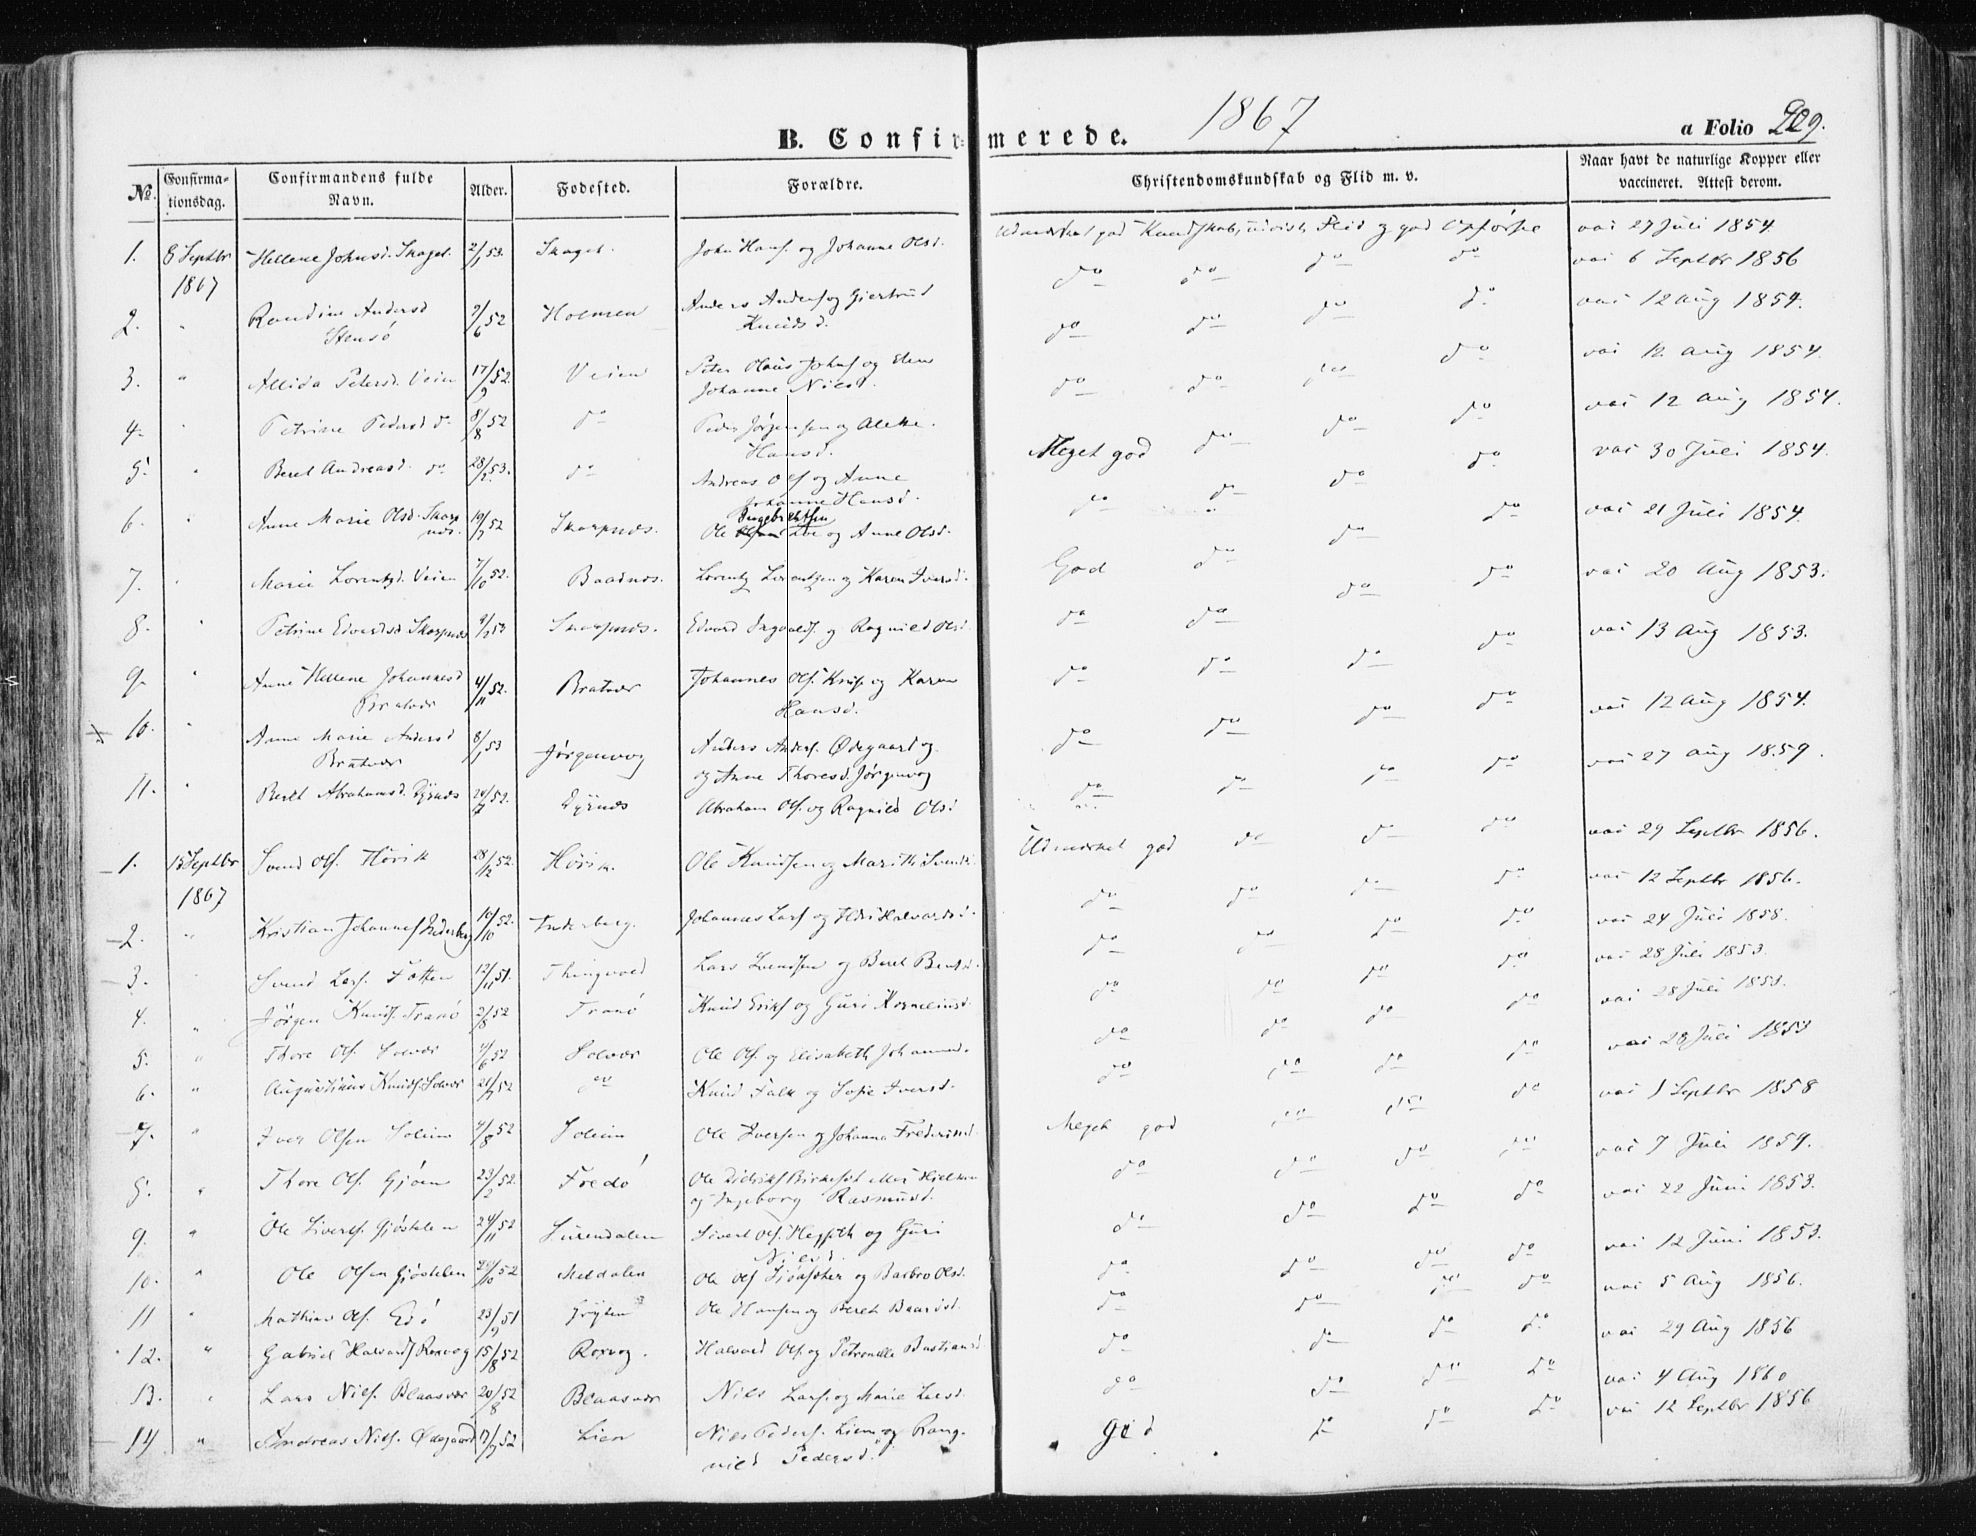 1867
B. Confirmerede. a Folio 209.
No. Confirmationsdag. Confirmandens fulde Navn. Alder. Fødested. Forældre. Christendomskundskab og Flid m. v. Naar havt de naturlige Kopper eller vaccineret. Attest derom.
1. 8 Septbr 1867 Hellene Johnsd. Skaget. 2/1 53. Skaget. John Hans. og Johanne Olsd. Udmærket god Kundskab, Flid og god Opførsel vac 27 Juli 1854
2. " Randine Andersd Stensö 9/6 52 Holmen Anders Anders og Giertrud Knudsd. do do do do vac 6 Septbr 1856
3. " Allida Petersd. Veien 17/9 52. Veien Peter Olaus Johns og Elen Johanne Nilsd. do do do do vac 12 Aug 1854.
4. " Petrine Pedersd do 8/8 52 do Peder Jørgensen og Alethe Hansd. do do do do vac 12 Aug 1854.
5. " Beret Andreasd. do 28/2 53. do Andreas Ols og Anne Johanne Hansd. Meget god do do do vac 12 Aug 1854.
6. " Anne Marie Olsd. Skarpnæs. 19/7 52 Skarpnæs. Ole Ingebrethsen og Anne Olsd. do do do do vac 30 Juli 1854.
7. " Marie Lorentsd. Veien 7/10 52. Baadnæs. Lorents Lorentzen og Karen Iversd. God do do do vac 21 Juli 1854.
8. " Petrine Edvardsd Skarpnæs 9/2 53 Skarpnæs. Edvard Ingvalds. og Ragnild Olsd. do do do do vac 20 Aug 1853.
9. " Anne Hellene Johannesd Bratvær 4/11 52. Bratvær Johannes Ols. Knus og Karen Hansd. do do do do vac 13 Aug 1853.
10. " Anne Marie Andersd Bratvær 8/1 53 Jørgenvog Anders Anders. Ødegaard og og Anne Thoresd. Jørgenvog do do do do vac 12 Aug 1854.
11. " Bereth Abrahamsd. Dyrnæs 24/7 52. Dyrnæs Abraham Ols. og Ragnild Olsd do do do do vac 27 Aug 1859.
1. 15 Septbr 1867 Svend Ols. Hövik 28/12 52. Hövik. Ole Knudsen og Marith Svendsd. Udmærket god do do do vac 29 Septbr 1856.
2. " Kristian Johannes Inderberg 10/10 52. Inderberg. Johannes Lars og Halvardsd. do do do do vac 12 Septbr 1856.
3. " Svend Lars. Fatten 12/11 51. Thingvold Lars Svendsen og Beret Berthsd. do do do do vac 24 Juli 1858.
4. " Jörgen Knuds. Tranö 2/8 52 Tranö Knud Eriks og Guri Korneliusd. do do do do vac 28 Juli 1853.
5. " Thore Ols. Solvær 4/6 52 Solvær Ole Ols. og Elisabeth Johannesd. do do do do vac 28 Juli 1853.
6. " Augustinus Knuds. Solvær 21/7 52 do Knud Falk og Sofie Iversd. do do do do vac 28 Juli 1853
7. " Iver Olsen Soleim 4/8 52 Soleim Ole Iversen og Johanna Frederiksd. Meget god do do do vac 1 Septbr 1858
8. " Thore Ols. Gjöen 23/2 52. Fredö Ole Didriks og Ingeborg Rasmusd. do do do do vac 7 Juli 1854.
9. " Ole Siverts. Gjöstelen 24/11 52 Surendalen Sivert Ols. og Guri Nilsd. do do do do vac 22 Juni 1853.
10. " Ole Olsen Gjöstelen 20/10 52 Meldalen Ole Ols og Barbro Olsd. do do do do vac 12 Juni 1853.
11 " Mathias Ols. Edö 23/9 51 Grÿten Ole Hansen og Bereth Baardsd. do do do do vac 5 Aug 1856.
12. " Gabriel Halvards Roxvog 15/8 52 Roxvog. Halvard Ols. og Petronelle Bastiansd do do do do vac 29 Aug 1856
13. " Lars Nils. Blaasvær 20/8 52 Blaasvær Niels Lars. og Marie Larsd. do do do do vac 4 Aug 1860
14 " Andreas Nils. Ødegaard 17/7 52 Lien Niels Peders. Lien og Rangnild Pedersd. God do do do vac 12 Septbr 1856